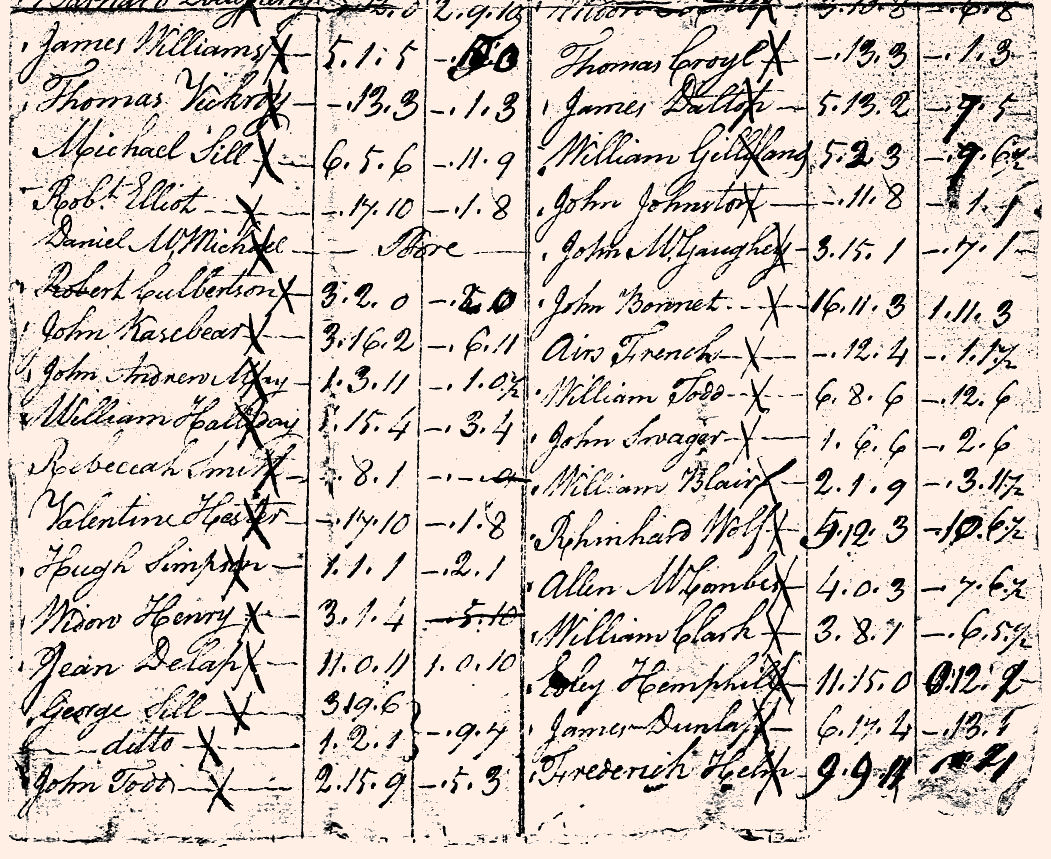 James Williams 5.1.5
Thomas Vickroy -.13.3 -.1.3
Michael Sill 6.5.6 -.11.9
Robt. Elliot -.17.10 -.1.8
Daniel McMichael
Robert Culbertson 3.2.0
John Kasebear 3.16.2 -.6.11
John Andrew May 1.3.11 -.1.0½
William Halliday 1.15.4 -.3.4
Rebeccah Smith -.8.1
Valentine Hester -.17.10 -.1.8
Hugh Simpson 1.1.1 -.2.1
Widow Henry 3.1.4 -.5.10
Jean Delap 11.0.11 1.0.10
George Sill 3.19.6
ditto 1.2.1 -.9.7
John Todd 2.15.9 -.5.3
Thomas Croyl -.13.3 -.1.3
James Dalton 5.13.2 -.7.5
William Gillyland 5.2.3 -.9.6½
John Johnston -.11.8 -.1.1
John McGaughey 3.15.1 -.7.1
John Bonnet 16.11.3 1.11.3
Airs French -.12.4 -.1.1½
William Todd 6.8.6 -.12.6
John Swager 1.6.6 -.2.6
William Blair 2.1.9 -.3.11½
Rhinhard Wolf 5.12.3 -.10.6½
Allen McCombs 4.0.3 -.7.6½
William Clark 3.8.1 -.6.5½
Hemphill 11.15.0
James Dunlap 6.17.4 -.13.1
Frederich Helm 9.9.11